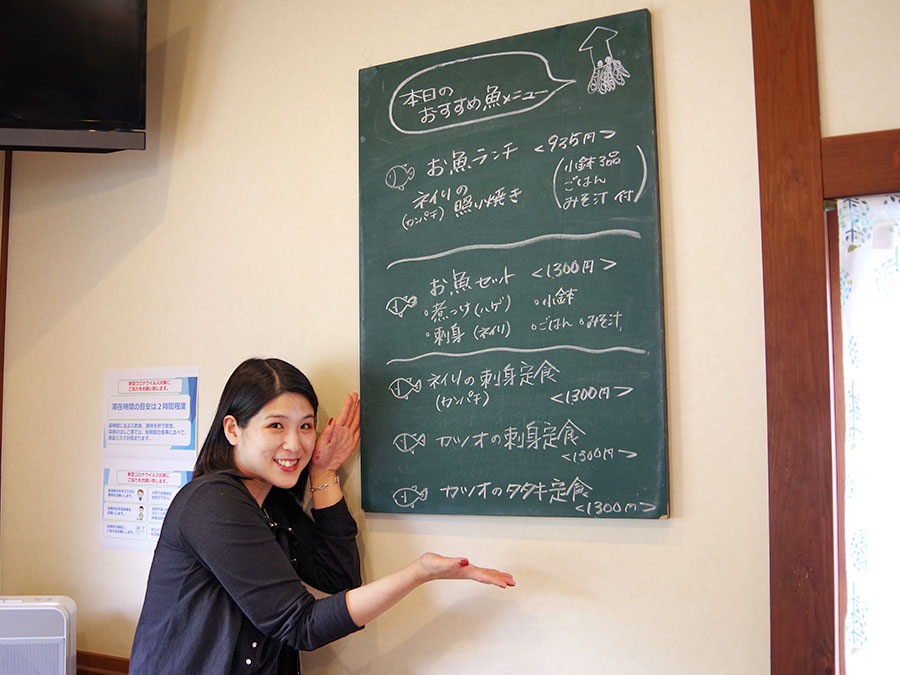 本日の
おすすめ魚メニュー
お魚ランチ <935円>
ネイリの
(カンパチ) 照り焼き
(小鉢3品
ごはん
みそ汁 付)
お魚セット <1300円>
・煮つけ(ハゲ) 。小鉢
・刺身(ネイリ) 。ごはん 。みそ汁
ネイリの刺身定食
(カンパチ) <1300円>
カツオの刺身定食
<1300円>
カツオのタタキ定食
<1300円>
新型コロナウイルス対策に
ご協力をお願い致します。
滞在時間の目安は2時間程度
新型コロナウイルス対策に
ご協力をお願い致します。